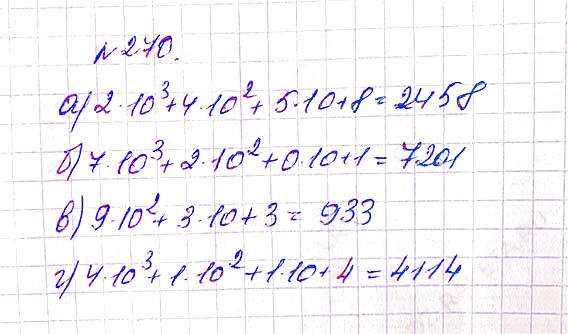 № 270.
а) 2·10³+4·10²+5·10+8=2458
б) 7·10³+2·10²+0·10+1=7201
в) 9·10²+3·10+3=933
г) 4·10³+1·10²+1·10+4=4114